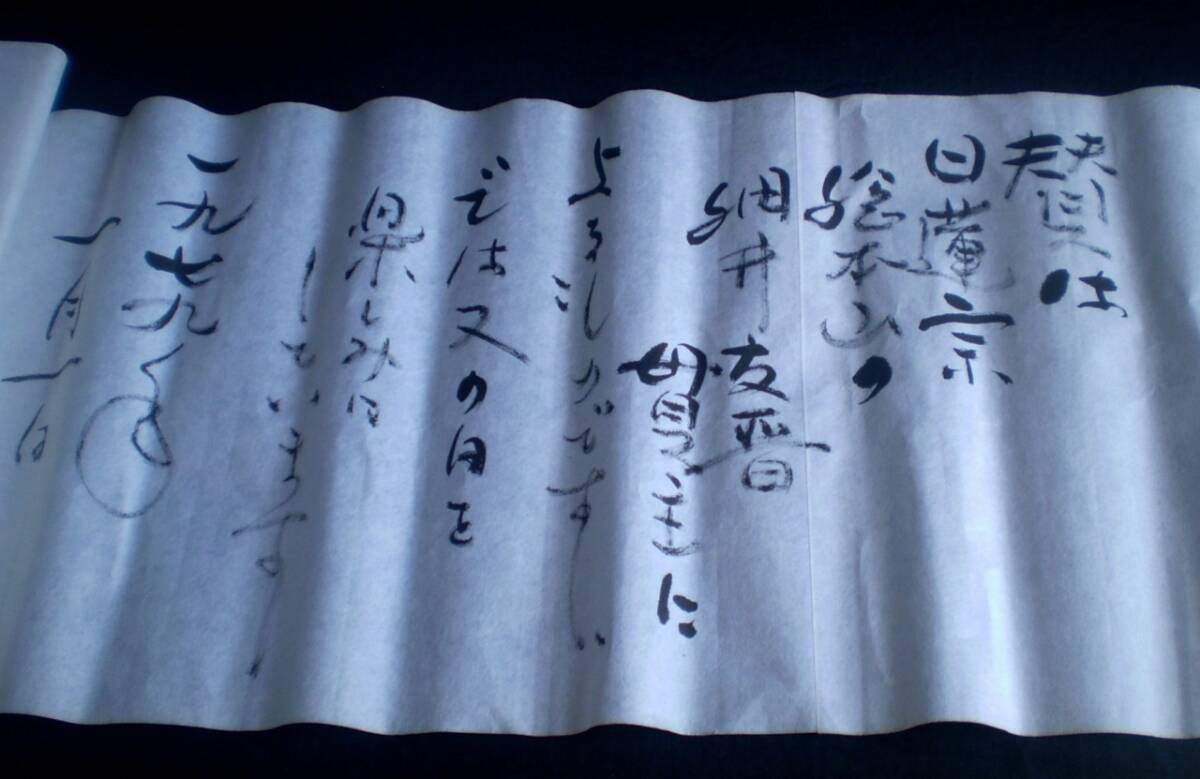 賛は
日蓮宗
総本山の
細井友晋
貫主に
よろしいのです
では又の日を
楽しみに
しています
一九七九年
一月一日